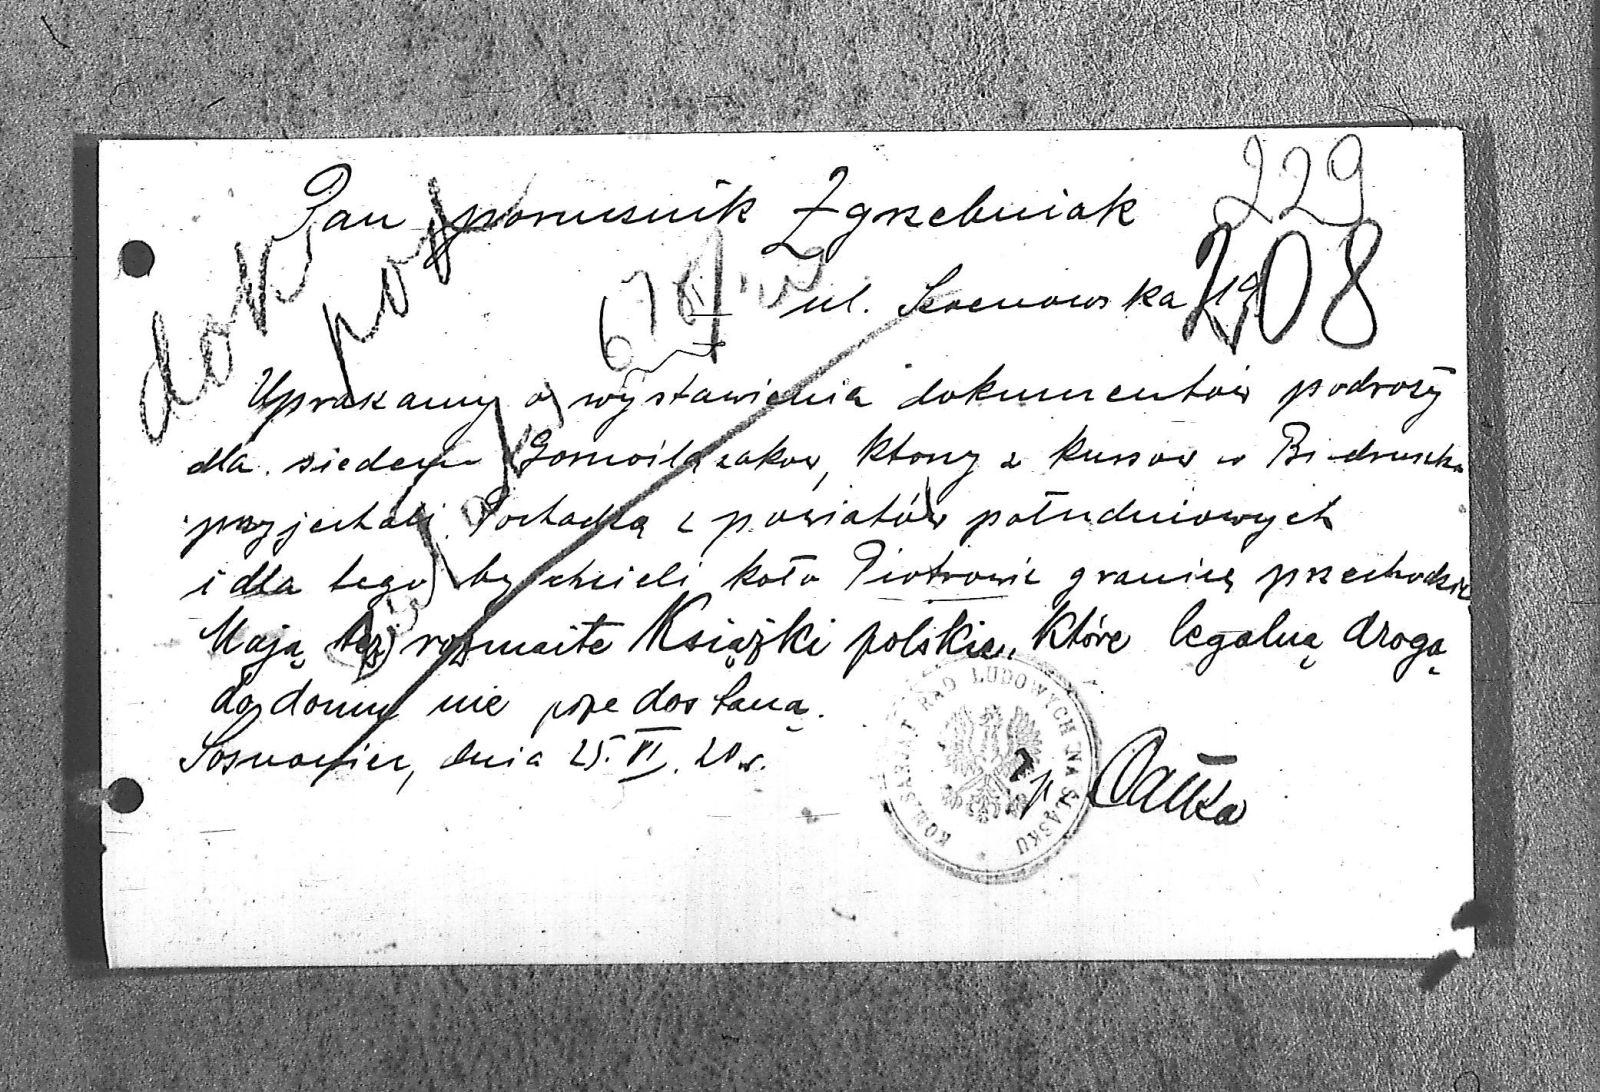 229
Pan porucznik Zgrzebniak
208
dok
pod
678
ul. 19
Upraszamy o wystawienia dokumentów podroży
dla siedem Gornoilązakow, ktorzy z kursow w Biedrusku
przyjechali. Pochadzą z powiatów południowych
i dla tego by chcieli koło Piotrowic granicę przechodzić.
Mają też rozmaite Książki polskie, które legalną drogą
do domu nie przedostaną.
Sosnowiec, dnia 25. VI. 20 r.
KOMISARJAT RAD LUDOWYCH NA ŚLĄSKU